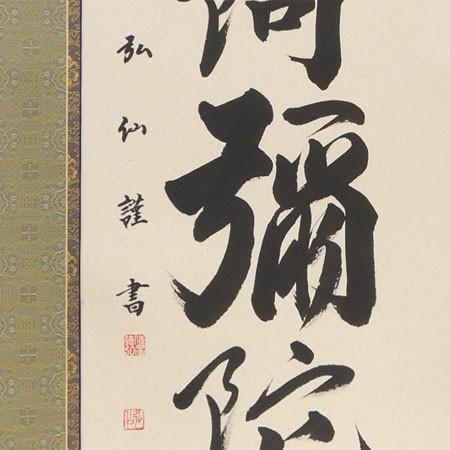 阿彌陀
弘仙謹書